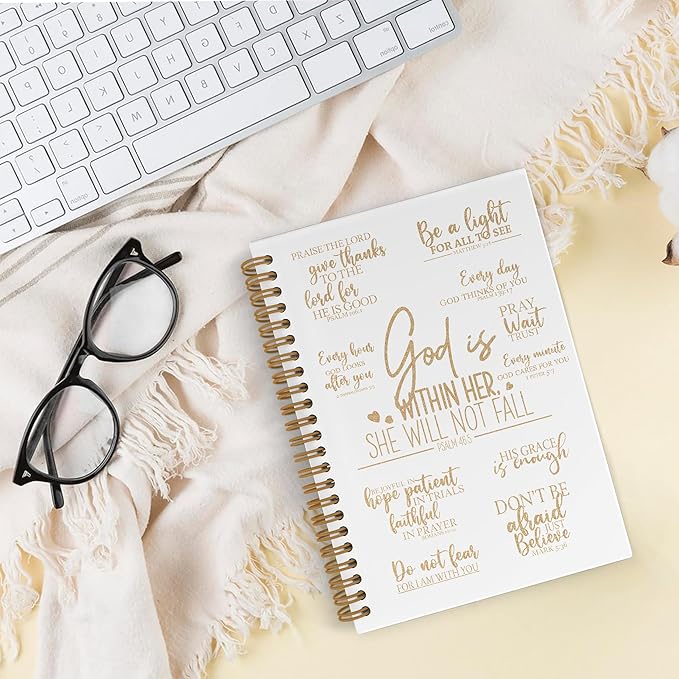 PRAISE THE LORD
give thanks
TO THE
lord for
HE IS GOOD
PSALM 106:1
Be a light
FOR ALL TO SEE
MATTHEW 5:16
Every day
GOD THINKS OF YOU
PSALM 139:17
PRAY
Wait
TRUST
Every hour
GOD LOOKS
after you
2 THESSALONIANS 3:3
God is
WITHIN HER,
SHE WILL NOT FALL
PSALM 46:5
Every minute
GOD CARES FOR YOU
1 PETER 5:7
HIS GRACE
is enough
BE JOYFUL IN
hope patient
IN TRIALS
faithful
IN PRAYER
ROMANS 12:12
DON'T BE
afraid
JUST
Believe
MARK 5:36
Do not fear
FOR I AM WITH YOU
option
command
command
option